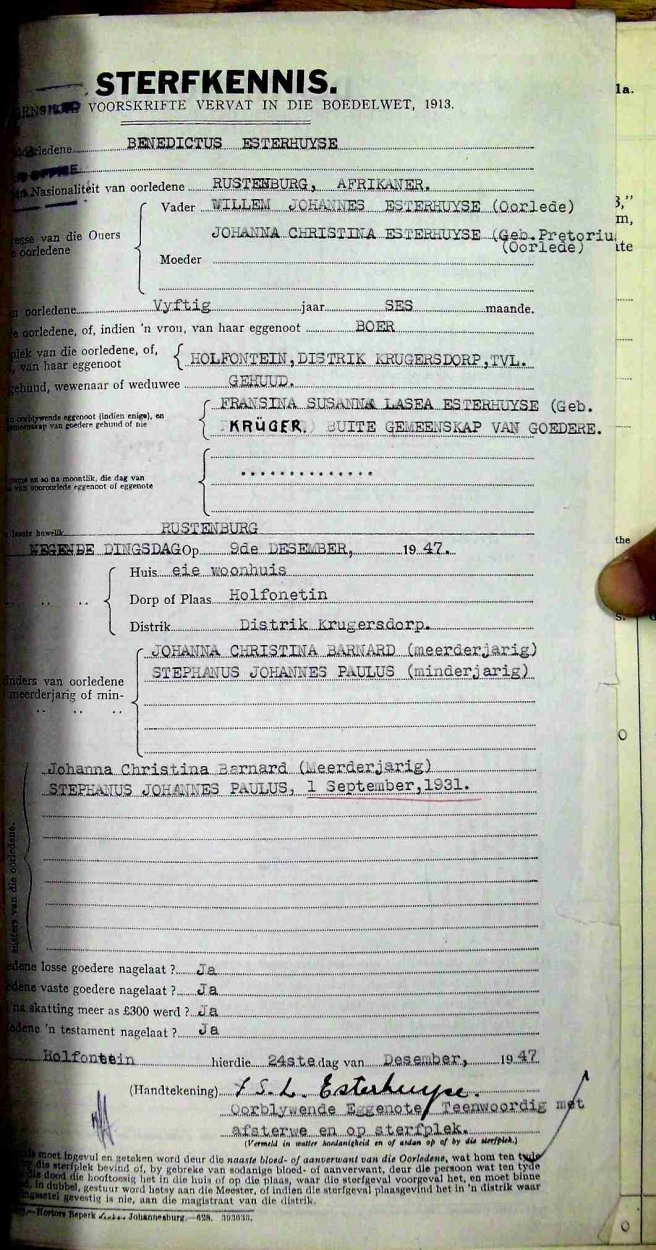 STERFKENNIS.
VOORSKRIFTE VERVAT IN DIE BOEDELWET, 1913.
oorledene BENEDICTUS ESTERHUYSE
Nasionaliteit van oorledene RUSTENBURG, AFRIKANER.
Vader WILLEM JOHANNES ESTERHUYSE (Oorlede)
van die Ouers
oorledene
JOHANNA CHRISTINA ESTERHUYSE (Geb. Pretoriu
(Oorlede)
Moeder
oorledene Vyftig jaar SES maande.
oorledene, of, indien 'n vrou, van haar eggenoot BOER
plek van die oorledene, of,
van haar eggenoot HOLFONTEIN, DISTRIK KRUGERSDORP, TVL.
gehuud, wewenaar of weduwee GEHUUD.
FRANSINA SUSANNA LASEA ESTERHUYSE (Geb.
oorblywende eggenoot (indien enige), en
gemeenskap van goedere gehuud of nie
KRÜGER.) BUITE GEMEENSKAP VAN GOEDERE.
en so na moontlik, die dag van
van vooroorlede eggenoot of eggenote
laaste huwelik RUSTENBURG
NEGENDE DINGSDAG Op 9de DESEMBER, 1947.
Huis eie woonhuis
Dorp of Plaas Holfonetin
Distrik Distrik Krugersdorp.
JOHANNA CHRISTINA BARNARD (meerderjarig)
STEPHANUS JOHANNES PAULUS (minderjarig)
van oorledene
meerderjarig of min-
Johanna Christina Barnard (Meerderjarig)
STEPHANUS JOHANNES PAULUS, 1 September, 1931.
van die oorledene.
losse goedere nagelaat ? Ja
vaste goedere nagelaat ? Ja
na skatting meer as £300 werd ? Ja
'n testament nagelaat ? Ja
Holfontein hierdie 24ste dag van Desember, 1947
(Handtekening) F. S. L. Esterhuyse.
Oorblywende Eggenote, Teenwoordig met
afsterwe en op sterfplek.
(Vermeld in watter hoedanigheid en of aldan op of by die sterfplek.)
moet ingevul en geteken word deur die naaste bloed- of aanverwant van die Oorledene, wat hom ten tyde
die sterfplek bevind of, by gebreke van sodanige bloed- of aanverwant, deur die persoon wat ten tyde
die dood die hooftoesig het in die huis of op die plaas, waar die sterfgeval voorgeval het, en moet binne
in dubbel, gestuur word hetsy aan die Meester, of indien die sterfgeval plaasgevind het in 'n distrik waar
gevestig is nie, aan die magistraat van die distrik.
Hortors Beperk Johannesburg.—628.
1a.
3,"
m,
te
the
s.